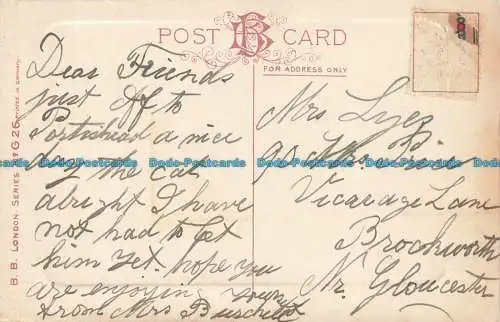 POST CARD
FOR ADDRESS ONLY
B. B. LONDON. SERIES Nº G 26 Printed in Germany.
Dear Friends
just off to
Portishead a nice
of the cat
alright I have
not had to let
him yet. hope you
are enjoying your
from Mrs
Mrs Lyes
go Mrs
Vicarage Lane
Brockworth
Nr. Gloucester
Bodo-Postcards Bodo-Postcards Bodo-Postcards Bodo-Postcards